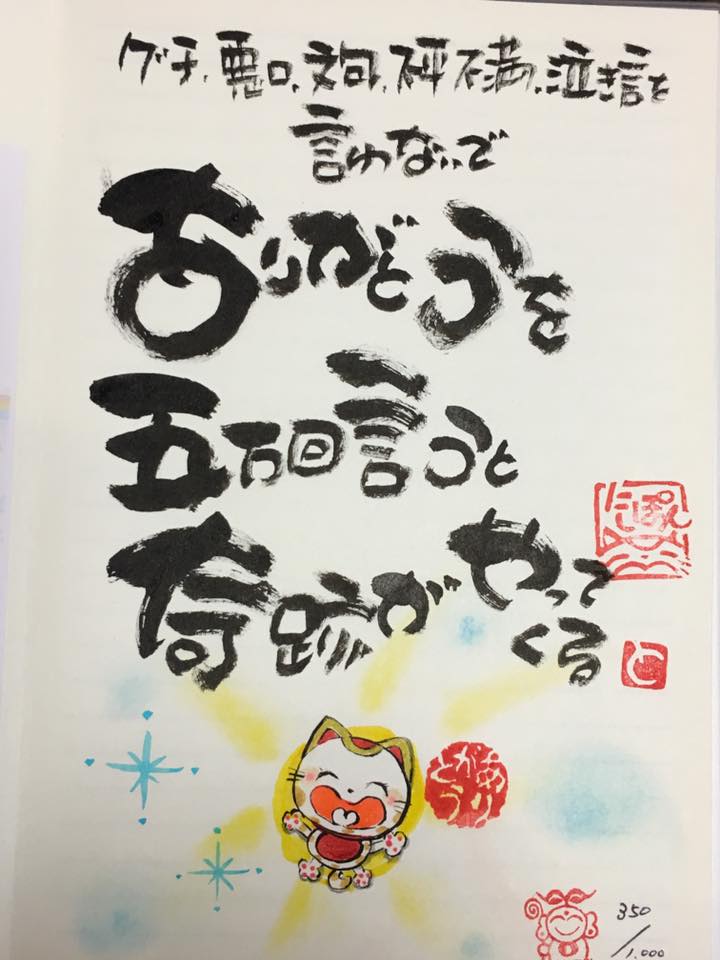 グチ、悪口、文句、不平不満、泣き言を
言わないで
ありがとうを
五万回言うと
奇跡が やって
くる
にっぽん
と
ありがとう
350/1,000